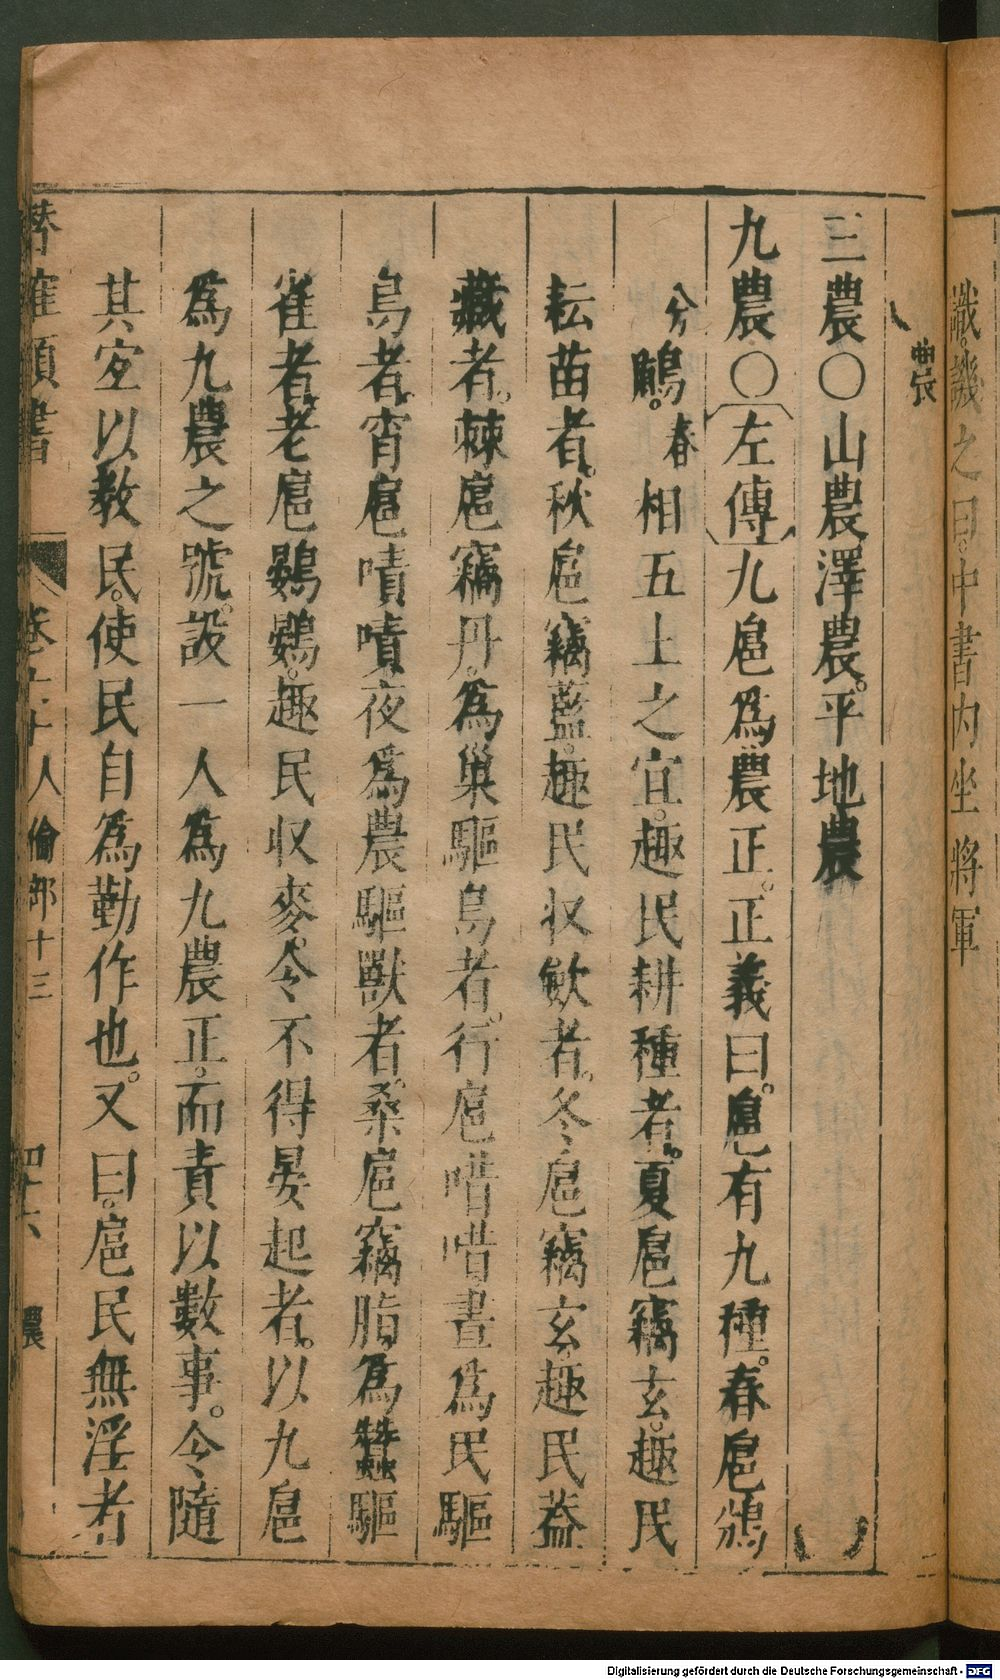 識譏之曰。中書内坐將軍
農
三農〇山農澤農。平地農
九農〇左傳九扈爲農正。正義曰。扈有九種。春扈鳻
分鶞。春相五土之宜。趣民耕種者。夏扈竊玄。趣民
耘苗者。秋扈竊藍。趣民収斂者。冬扈竊玄趣民蓋
藏者。棘扈竊丹。爲巢驅鳥者。行扈唶唶晝爲民驅
鳥者。宵扈嘖嘖夜爲農驅獸者。桑扈竊脂爲蠶驅
雀者老扈鷃鷃。趣民収麥。令不得晏起者。以九扈
爲九農之號。設一人爲九農正。而責以數事。令隨
其宜以教民。使民自爲勤作也。又曰。扈民無淫者
潛確類書 卷六十 人倫部十三 四十六 農
Digitalisierung gefördert durch die Deutsche Forschungsgemeinschaft - DFG